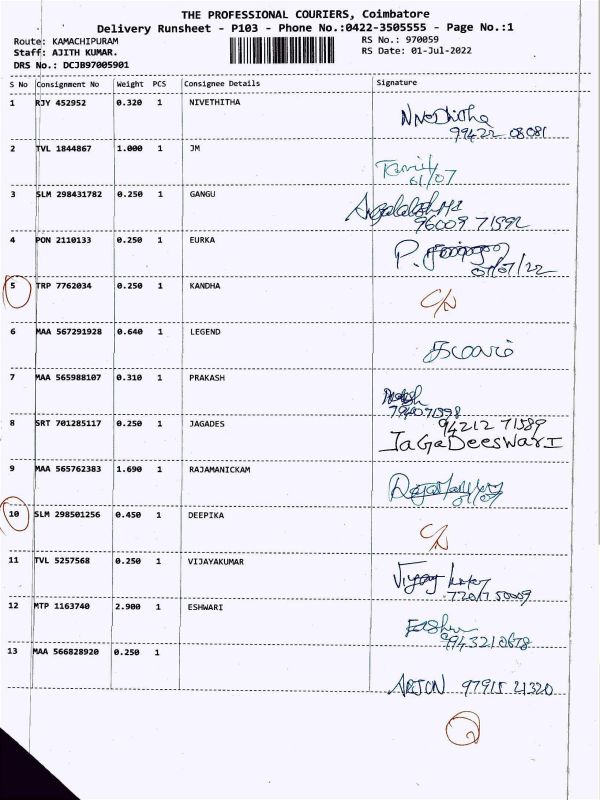 THE PROFESSIONAL COURIERS, Coimbatore
Delivery Runsheet - P103 - Phone No.:0422-3505555 - Page No.:1
Route: KAMACHIPURAM RS No.: 970059
Staff: AJITH KUMAR. RS Date: 01-Jul-2022
DRS No.: DCJB97005901
S No Consignment No Weight PCS Consignee Details Signature
1 RJY 452952 0.320 1 NIVETHITHA
Nivethitha
99422 08081
2 TVL 1844867 1.000 1 JM
01/07
3 SLM 298431782 0.250 1 GANGU
96009 71592
4 PON 2110133 0.250 1 EURKA
P.
01/07/22
5 TRP 7762034 0.250 1 KANDHA
C/N
6 MAA 567291928 0.640 1 LEGEND
7 MAA 565988107 0.310 1 PRAKASH
8 SRT 701285117 0.250 1 JAGADES
94212 71589
JaGaDeesWarI
9 MAA 565762383 1.690 1 RAJAMANICKAM
01/07
10 SLM 298501256 0.450 1 DEEPIKA
C/N
11 TVL 5257568 0.250 1 VIJAYAKUMAR
Vijay
12 MTP 1163740 2.900 1 ESHWARI
9943210678
13 MAA 566828920 0.250 1
ARJUN 97915 21320
2